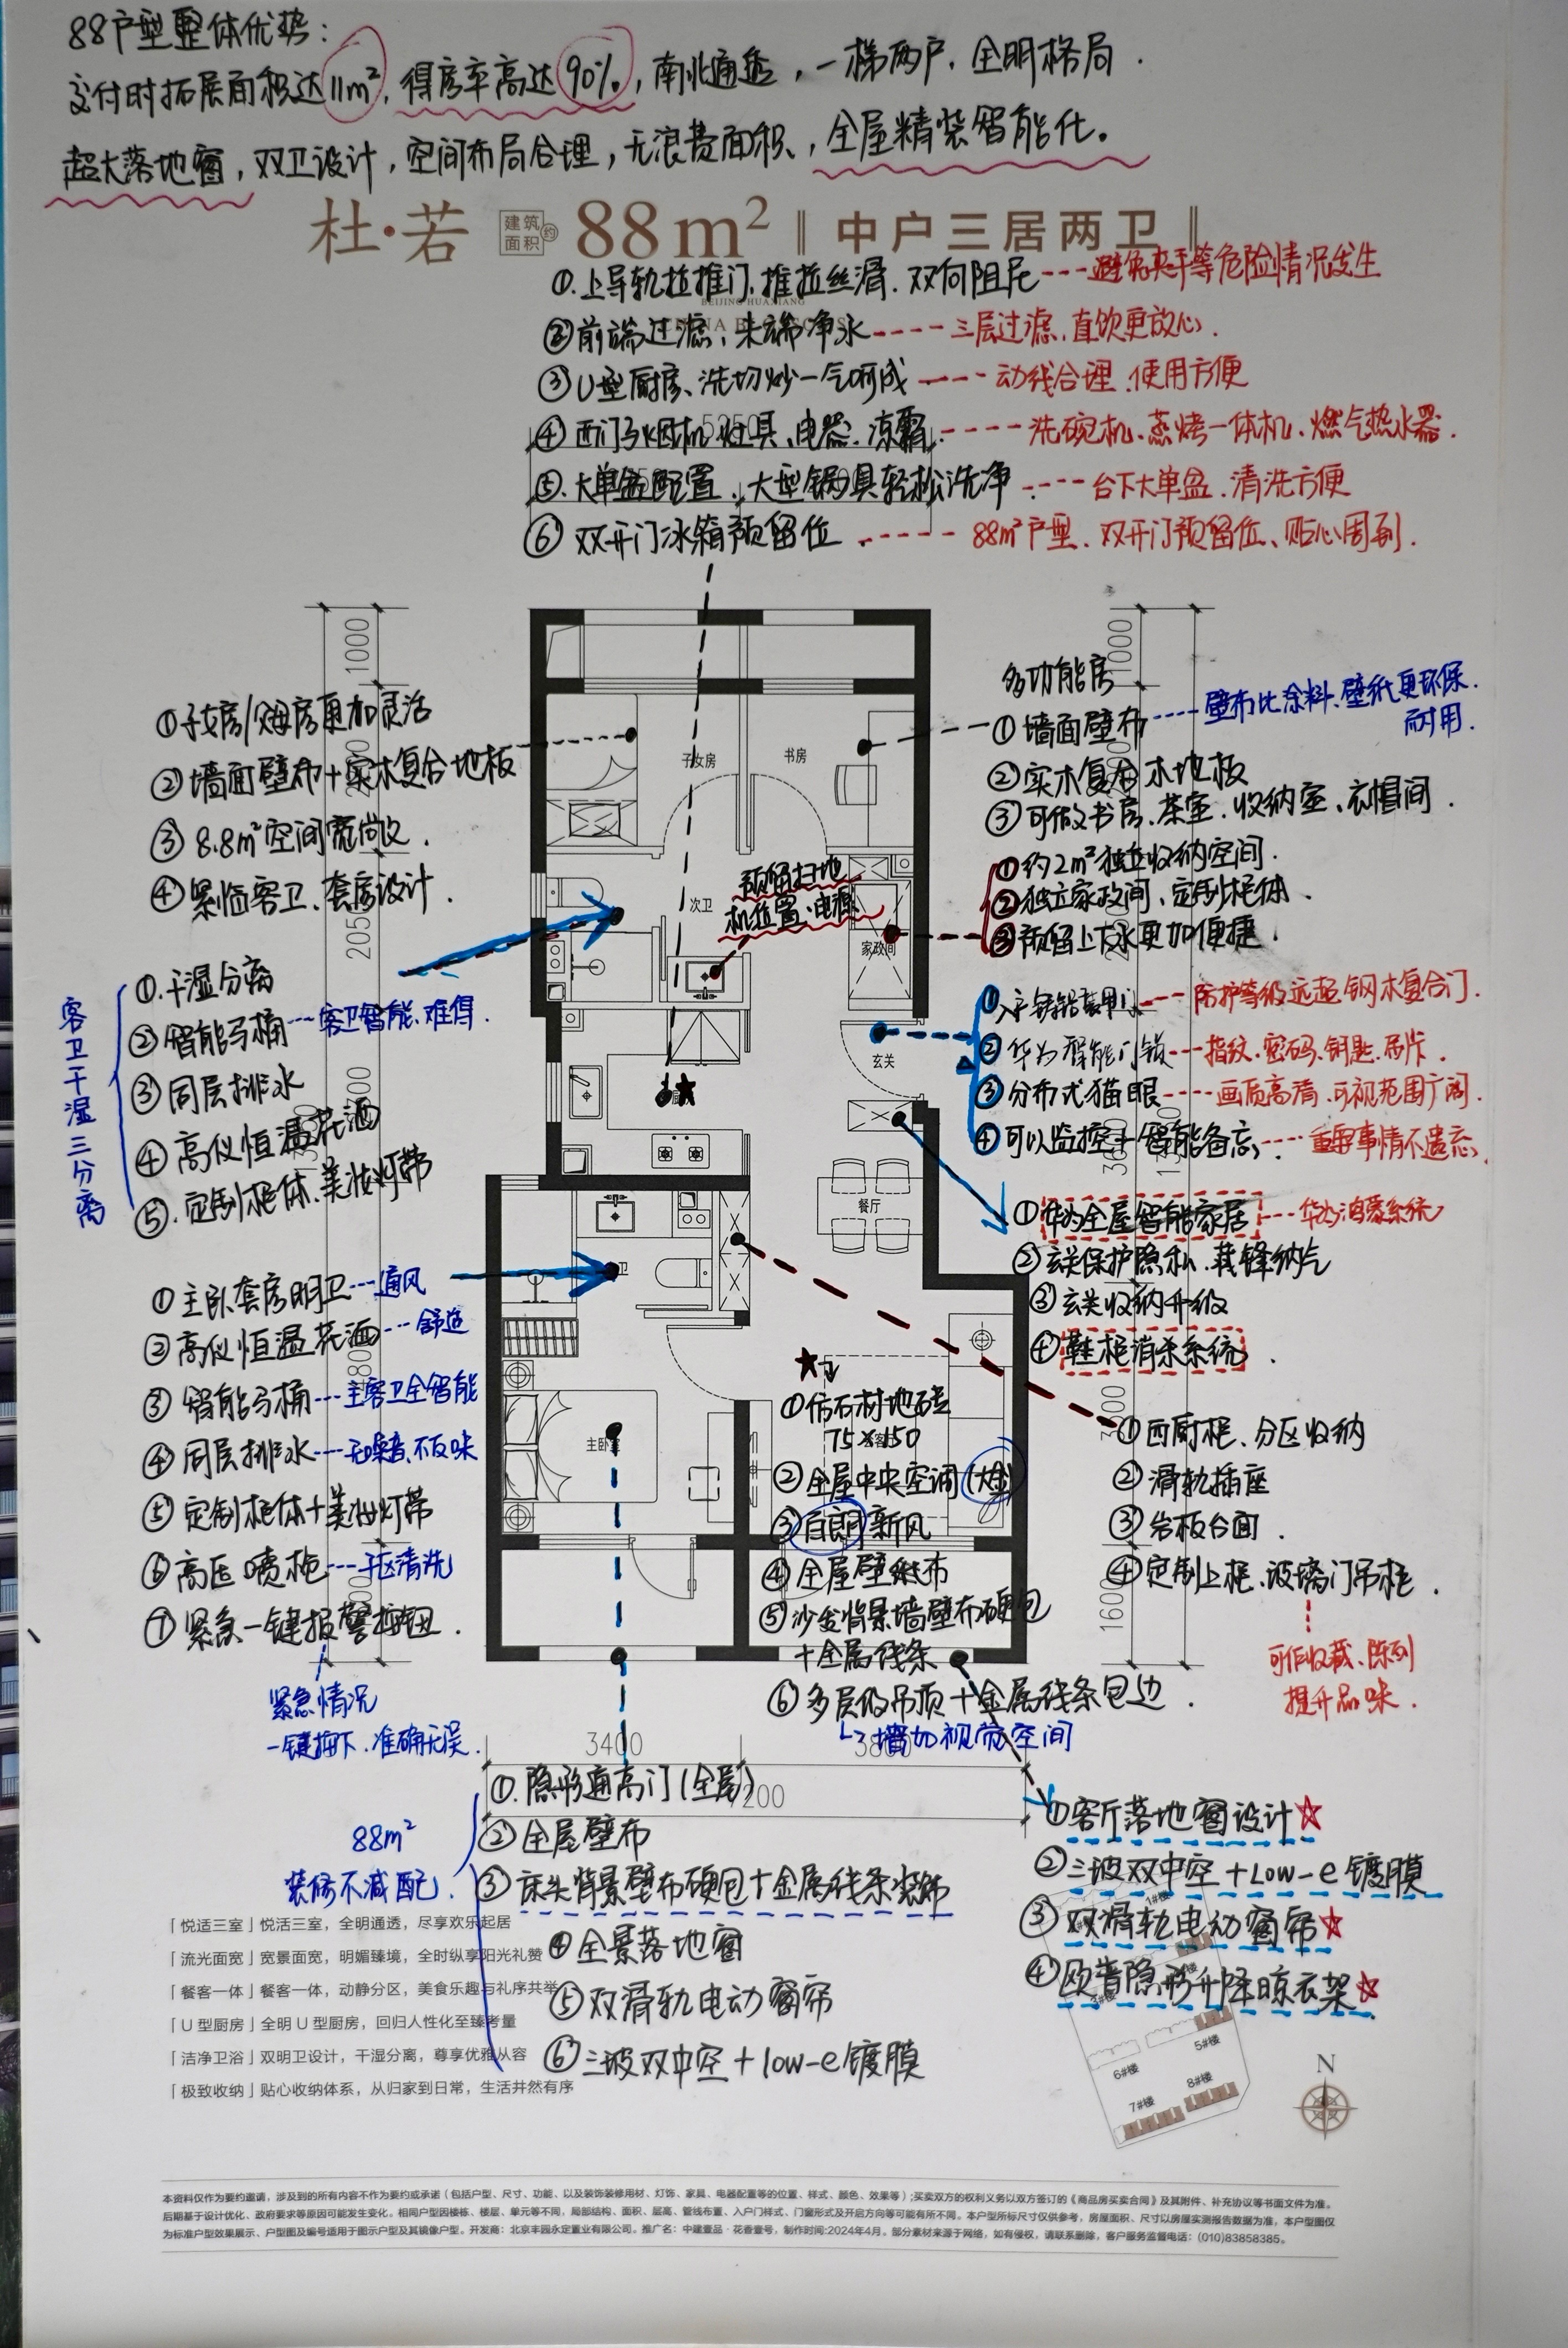 88户型整体优势：
交付时拓展面积达11m²，得房率高达90%，南北通透，一梯两户，全明格局．
超大落地窗，双卫设计，空间布局合理，无浪费面积，全屋精装智能化。
杜·若 建筑面积约 88m² 中户三居两卫
①上导轨拉推门、推拉丝滑．双向阻尼---避免夹手等危险情况发生
BEIJING HUAXIANG
②前端过滤，末端净水----三层过滤，直饮更放心．
③U型厨房、洗切炒一气呵成----动线合理．使用方便
④西门子烟机、灶具、电器、凉霸．----洗碗机、蒸烤一体机、燃气热水器．
⑤大单盆配置．大型锅具轻松洗净----台下大单盆．清洗方便
⑥双开门冰箱预留位．-----88m²户型、双开门预留位、贴心周到．
1000
1000
①子女房/父母房更加灵活
②墙面壁布+实木复合地板
③8.8m²空间宽敞．
④紧临客卫、套房设计．
2050
多功能房
①墙面壁布----壁布比涂料、壁纸更环保．
耐用．
②实木复合木地板
③可做书房、茶室、收纳室、衣帽间．
子女房
书房
次卫
预留扫地
机位置、电源
家政间
①约2m²独立收纳空间．
②独立家政间、定制柜体．
③预留上下水更加便捷．
客卫干湿三分离
①干湿分离
②智能马桶---客卫智能、难得．
③同层排水
④高仪恒温花洒
⑤定制柜体、美妆灯带
玄关
①入户铸铝装甲门---防护等级远超钢木复合门．
②华为智能门锁---指纹、密码、钥匙、吊卡．
③分布式猫眼----画质高清，可视范围广阔．
④可以监控+智能备忘．---重要事情不遗忘．
餐厅
①华为全屋智能家居---华为鸿蒙系统
②玄关保护隐私、藏锋纳气
③玄关收纳升级
④鞋柜消杀系统．
①主卧套房明卫---通风
②高仪恒温花洒---舒适
③智能马桶---主客卫全智能
④同层排水---无噪音、不反味
⑤定制柜体+美妆灯带
⑥高压喷枪---手区清洗
⑦紧急一键报警按钮．
紧急情况
一键按下．准确无误．
主卧室
①仿石材地砖
75×150
②全屋中央空调(大金)
③百朗新风
④全屋壁纸布
⑤沙发背景墙壁布硬包
+金属线条
⑥多层级吊顶+金属线条包边．
↳增加视觉空间
①西厨柜、分区收纳
②滑轨插座
③岩板台面．
④定制上柜、玻璃门吊柜．
可作收藏、陈列
提升品味．
1600
3400
7200
88m²
装修不减配．
①隐形通高门(全屋)
②全屋壁布
③床头背景壁布硬包+金属线条装饰
④全景落地窗
⑤双滑轨电动窗帘
⑥三玻双中空+low-e镀膜
①客厅落地窗设计☆
②三玻双中空+Low-e镀膜
③双滑轨电动窗帘☆
④欧普隐形升降晾衣架☆
「悦适三室」悦活三室，全明通透，尽享欢乐起居
「流光面宽」宽景面宽，明媚臻境，全时纵享阳光礼赞
「餐客一体」餐客一体，动静分区，美食乐趣与礼序共举
「U型厨房」全明U型厨房，回归人性化至臻考量
「洁净卫浴」双明卫设计，干湿分离，尊享优雅从容
「极致收纳」贴心收纳体系，从归家到日常，生活井然有序
1#楼
5#楼
6#楼
8#楼
7#楼
N
本资料仅作为要约邀请，涉及到的所有内容不作为要约或承诺（包括户型、尺寸、功能、以及装饰装修用材、灯饰、家具、电器配置等的位置、样式、颜色、效果等）；买卖双方的权利义务以双方签订的《商品房买卖合同》及其附件、补充协议等书面文件为准。
后期基于设计优化、政府要求等原因可能发生变化。相同户型因楼栋、楼层、单元等不同，局部结构、面积、层高、管线布置、入户门样式、门窗形式及开启方向等可能有所不同。本户型所标尺寸仅供参考，房屋面积、尺寸以房屋实测报告数据为准，本户型图仅
为标准户型效果展示、户型图及编号适用于图示户型及其镜像户型。开发商：北京丰园永定置业有限公司。推广名：中建壹品·花香壹号，制作时间:2024年4月。部分素材来源于网络，如有侵权，请联系删除，客户服务监督电话：(010)83858385。